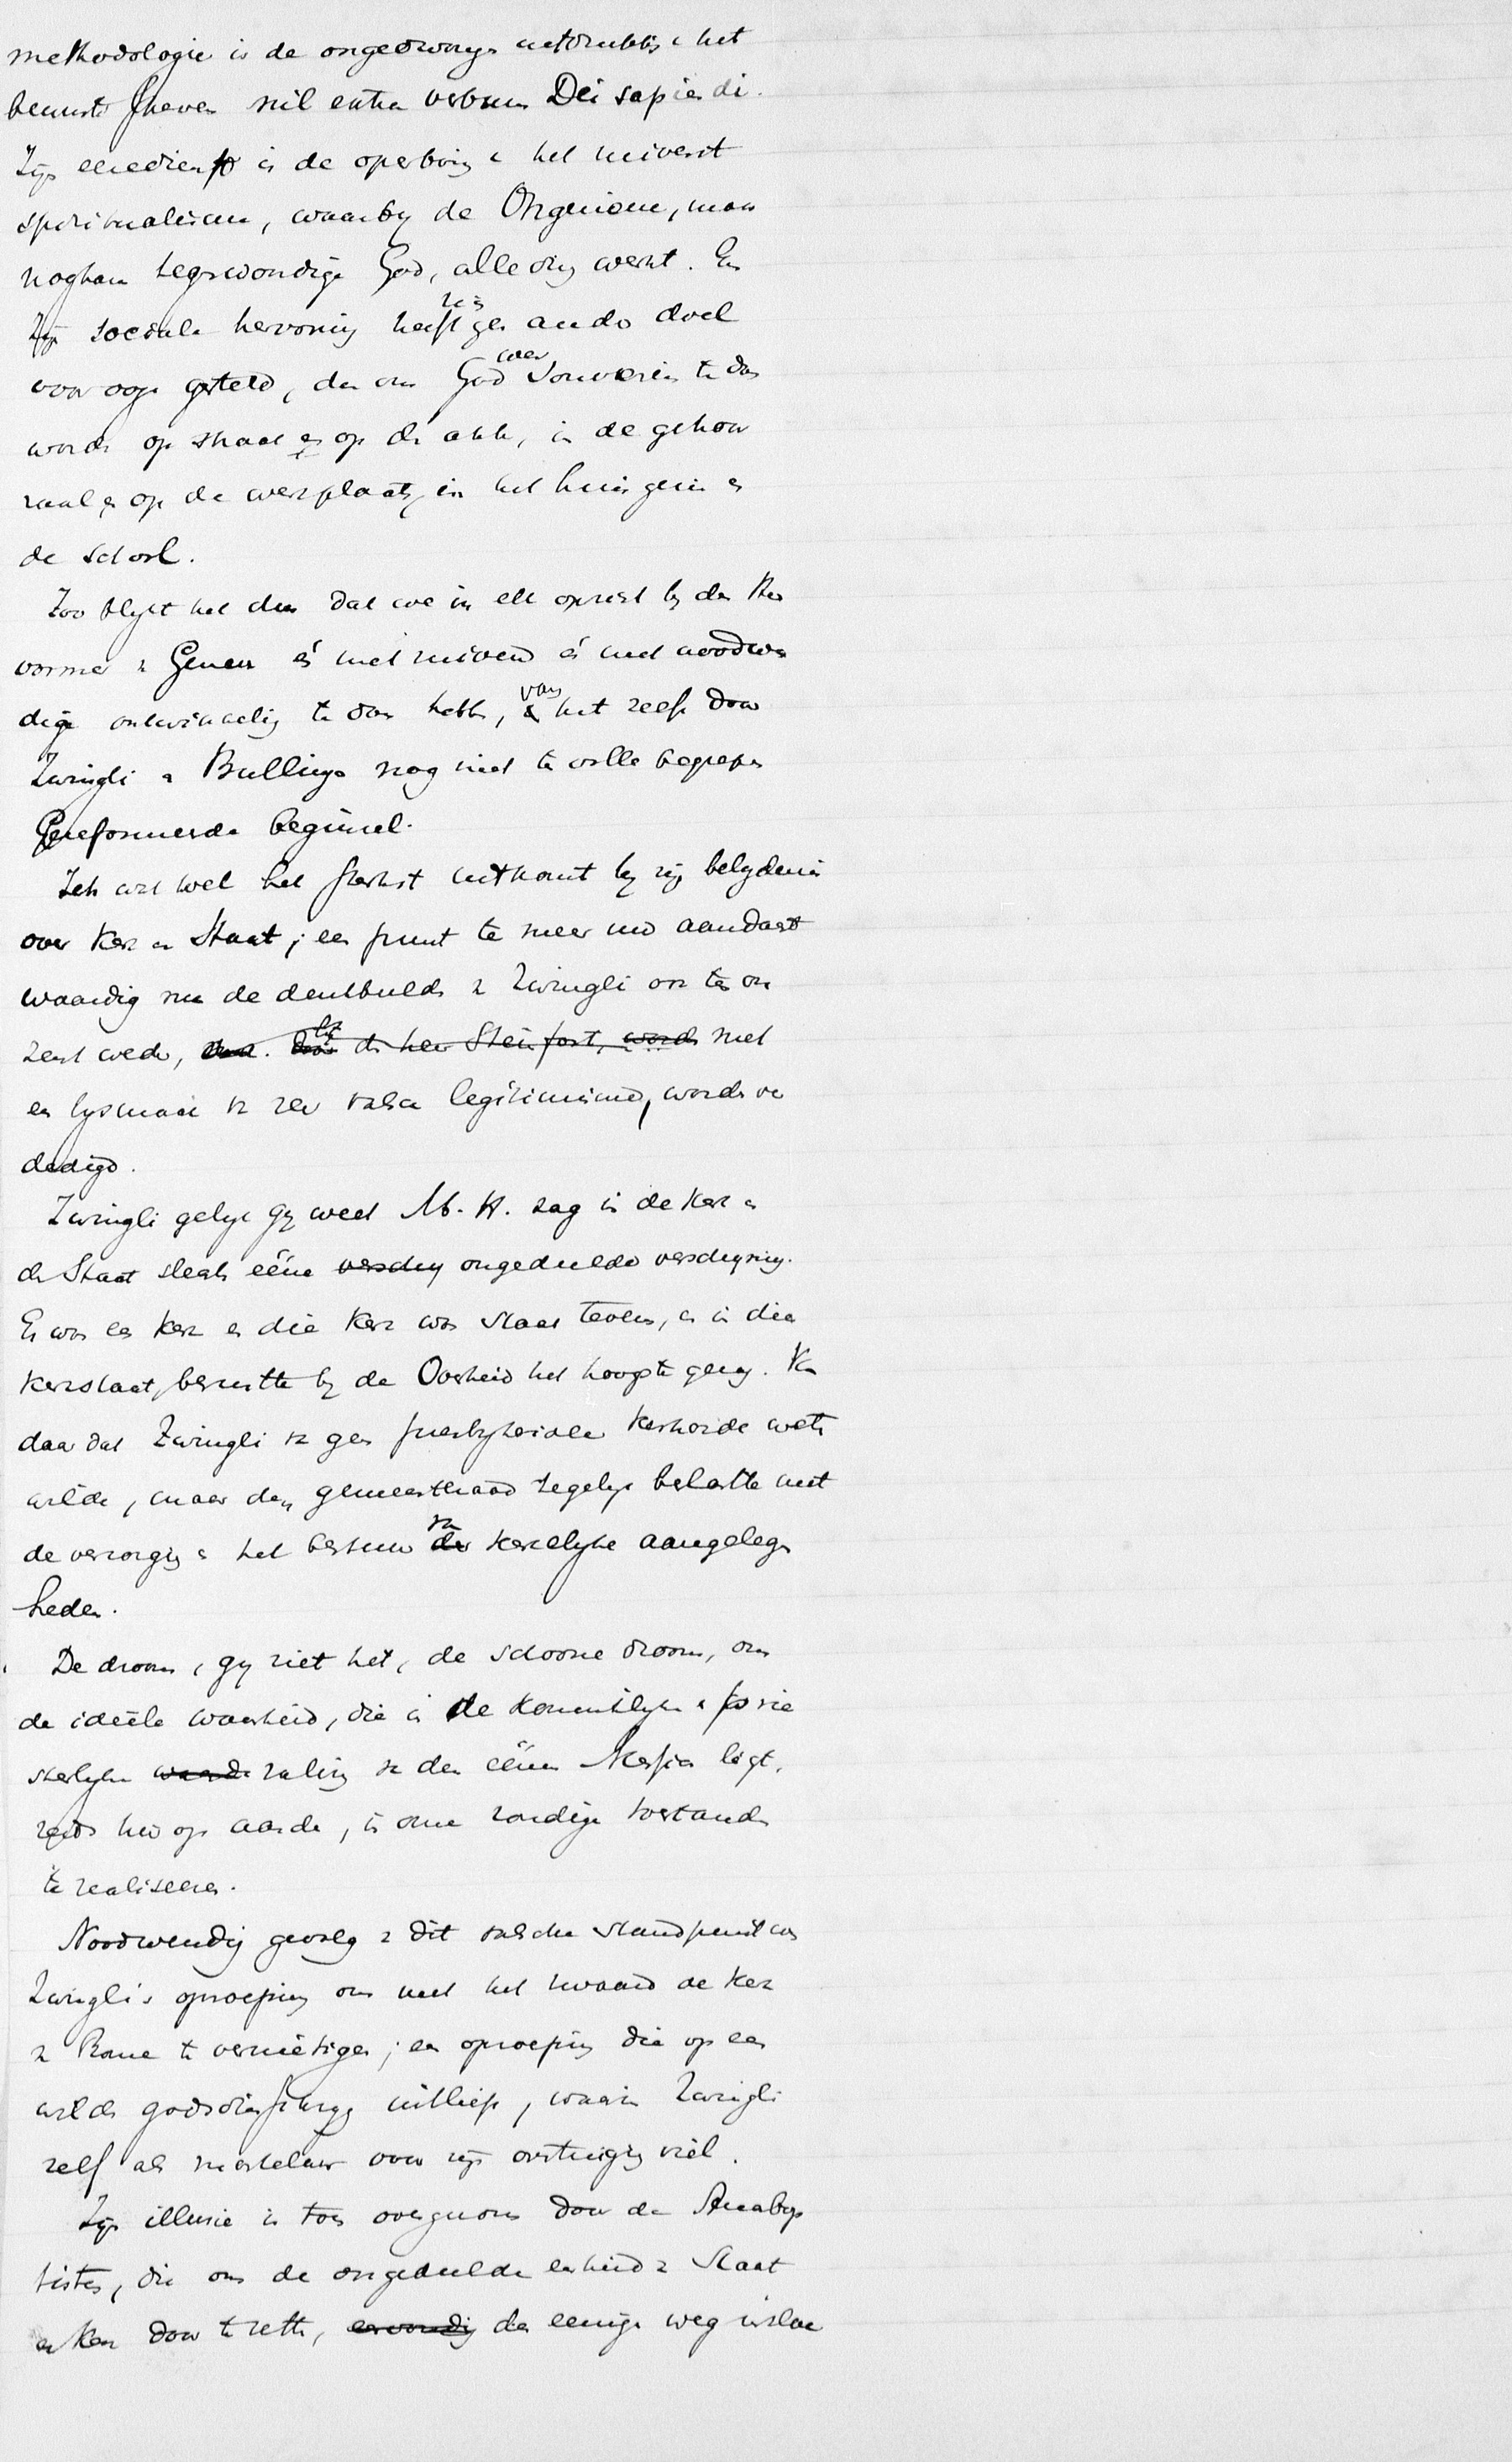 methodologie is de ongedwongen uitdrukking v het
bewust streven nil extra verbum Dei sapiendi.
Zijn eeredienst is de openbaring v het
spiritualisme, waarby de Ongeziene, maar
nogtans tegenwoordige God, alle ding werkt. En
Zijn sociale hervorming heeft zich geen ander doel
voor ogen gesteld, dan om God weer Souverein te doen
worden op straat en op de akker, in de gehoor
zaal en op de werkplaats, in het huisgezin en
de school.
Zoo blykt het dus dat we in elk opzicht by den Her
vormer v Geneve én met nieuwe én met noodwen
dige ontwikkeling te doen hebben, van het zelfs door
Zwingli en Bullinger nog niet ten volle begrepen
Gereformeerde beginsel.
Iets wat wel het sterkst uitkomt by zijn belydenis
over Kerk en Staat; een punt te meer uw aandacht
waardig nu de denkbeelden v Zwingli ook ten on
zent weder, door de heer Steinfort, worden met
en lysmaar v zeer valsch legitimeered, worden ver
dedigd.
Zwingli gelyk gy weet M. H. zag in de Kerk en
de Staat slechts ééne verschy ongedeelde verschyning.
Er was een Kerk en die Kerk was Staat tevens, en in die
Kerkstaat, berustte by de Overheid het hoogste gezag. Van
daar dat Zwingli v geen presbyteriale kerkorde weten
wilde, maar den gemeenteraad tegelyk belastte met
de verzorging en het bestuur der van kerkelyke aangelegen
heden.
De droom, gy ziet het, de schoone droom, om
de ideëele waarheid, die in de Koninklyke en prie
sterlyke waarde zalving v den éénen Messias ligt,
reeds hier op aarde, in onze zondige toestanden
te realiseeren.
Noodwendig gevolg v dit valsche standpunt was
Zwingli's oproeping om met het zwaard de Kerk
v Rome te vernietigen; een oproeping die op een
wilden godsdienstkryg uitliep, waarin Zwingli
zelf als martelaar voor zijn overtuiging viel.
Zijn illusie is toen overgenomen door de Anabap
tisten, die om de ongedeelde eenheid v Staat
en Kerk door te zetten, eenvoudig den eenigen weg insloe